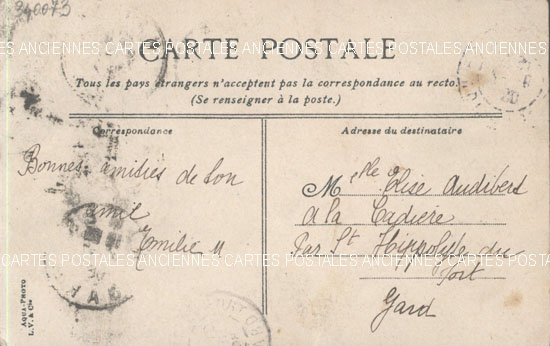 340073
CARTES POSTALES ANCIENNES CARTES POSTALES ANCIENNES CARTES POSTALES ANCIENNES
CARTE POSTALE
Tous les pays étrangers n'acceptent pas la correspondance au recto.
(Se renseigner à la poste.)
Correspondance
Bonnes amitiés de ton
amie
Emilie M
Adresse du destinataire
Melle Elise Audibert
à la Cadière
Par St Hippolyte du
Fort
Gard
AQUA-PHOTO
L.V. & Cie